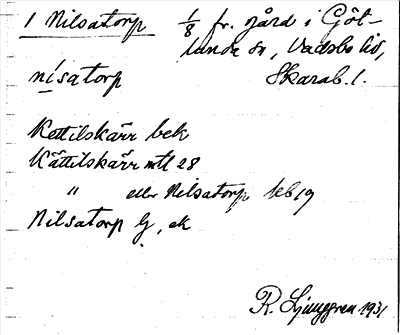 1 Nilsatorp 1/8 fr. gård i Göt-
lunda sn, Vadsbo hd,
nísatorp Skarab. l.
Kettilskärr bek
Kättilskärr mtl 28
" eller Nilsatorp kb 19
Nilsatorp G, ek
R. Ljunggren 1931